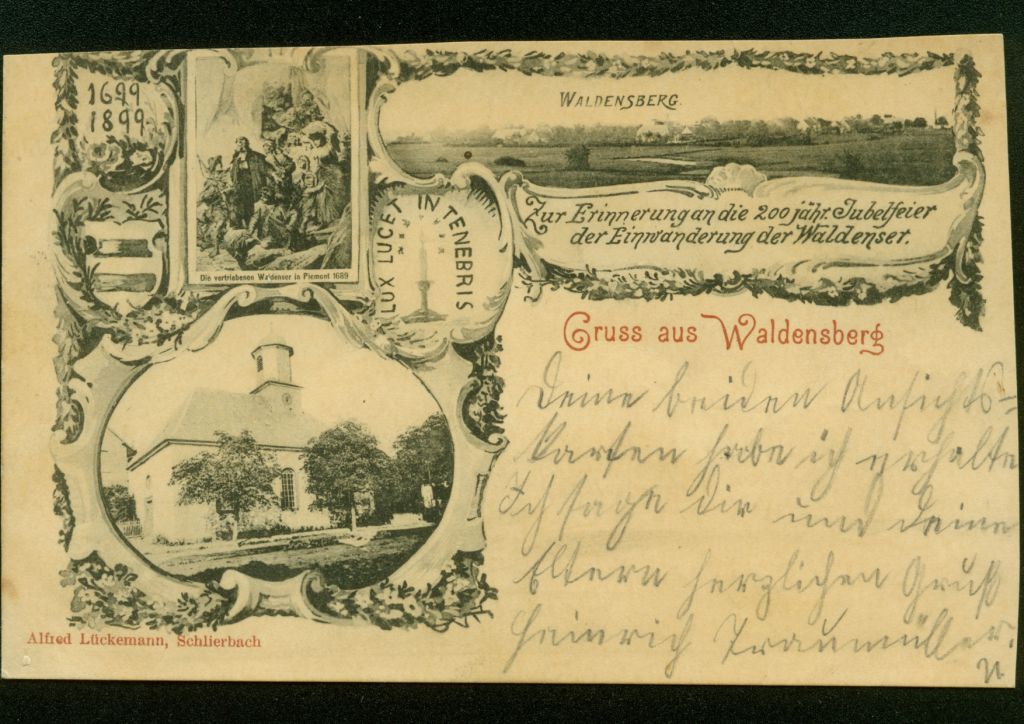 1699
1899.
Die vertriebenen Waldenser in Piemont 1689
WALDENSBERG.
LUX LUCET IN TENEBRIS
Zur Erinnerung an die 200 jähr. Jubelfeier
der Einwanderung der Waldenser.
Gruss aus Waldensberg
Deine beiden Ansichts-
karten habe ich erhalte
Ich sage dir und deine
Eltern herzlichen Gruß
Heinrich Traumüller.
Alfred Lückemann, Schlierbach